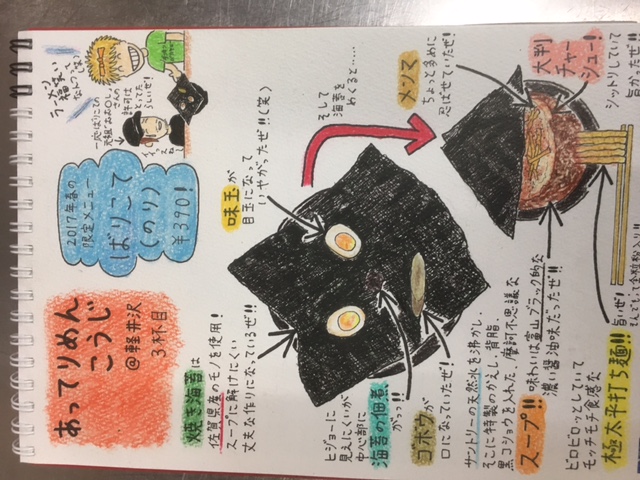 あってりめん
こうじ
@軽井沢
3杯目
2017年春の
限定メニュー
ばりこて
(のり)
¥390!
焼き海苔は
佐賀県産のモノを使用!
スープに解けにくい
丈夫な作りになっているぜ!!
味玉が
目玉になって
いやがったぜ!!(笑)
そして
海苔を
めくると……
メンマ
ちょっと多めに
忍ばせていたぜ!
大判
チャー
シュー!
シットリしていて
旨かったぜ!!
ヒジョーに
見えにくいが
中心部に
海苔の佃煮
がっっ!!
ゴボウが
口になっていたぜ!
サントリーの天然水を沸かし、
そこに特製のかえし、背脂、
黒コショウを入れた、摩訶不思議な
スープ!!
味わいは富山ブラック的な
濃い醤油味だったぜ!!
ビロビロッとしていて
モッチモチ食感な
極太平打ち麺!!
旨いぜ!